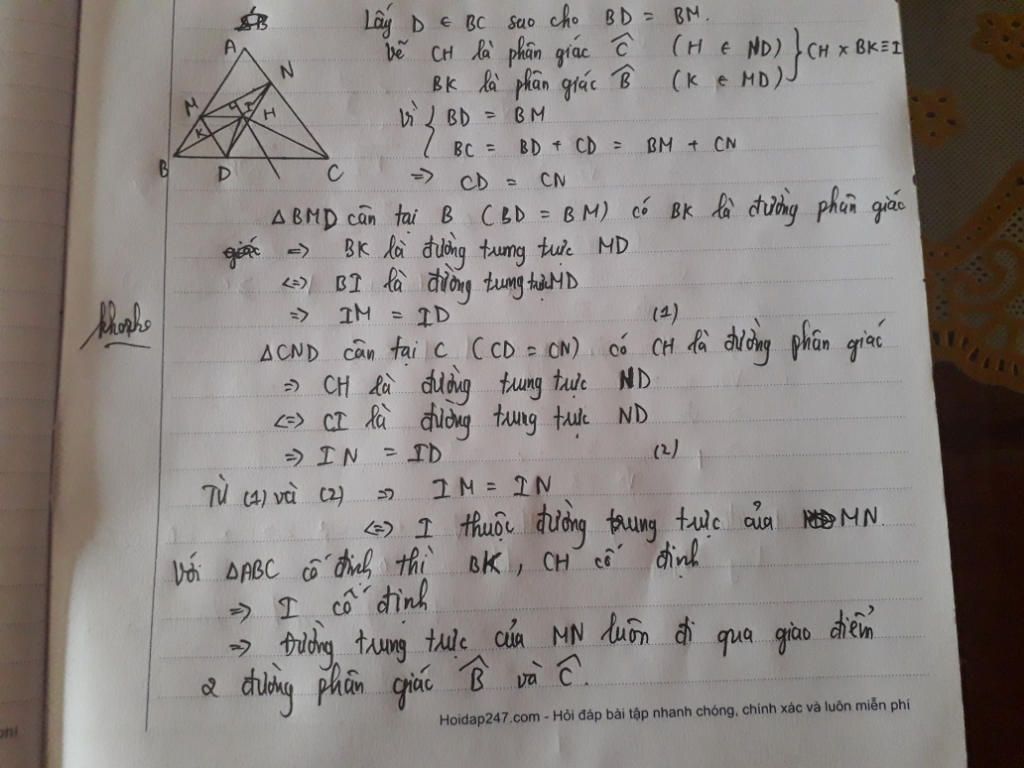 A
N
M
I
H
K
B
D
C
Lấy D ∈ BC sao cho BD = BM.
Vẽ CH là phân giác Ĉ (H ∈ ND) } CH x BK ≡ I
BK là phân giác B̂ (K ∈ MD)
Vì { BD = BM
BC = BD + CD = BM + CN
=> CD = CN
ΔBMD cân tại B (BD = BM) có BK là đường phân giác
=> BK là đường trung trực MD
<=> BI là đường trung trực MD
=> IM = ID (1)
ΔCND cân tại C (CD = CN) có CH là đường phân giác
=> CH là đường trung trực ND
<=> CI là đường trung trực ND
=> IN = ID (2)
Từ (1) và (2) => IM = IN
<=> I thuộc đường trung trực của MN.
Với ΔABC cố định thì BK, CH cố định
=> I cố định
=> Đường trung trực của MN luôn đi qua giao điểm
2 đường phân giác B̂ và Ĉ.
Hoidap247.com - Hỏi đáp bài tập nhanh chóng, chính xác và luôn miễn phí